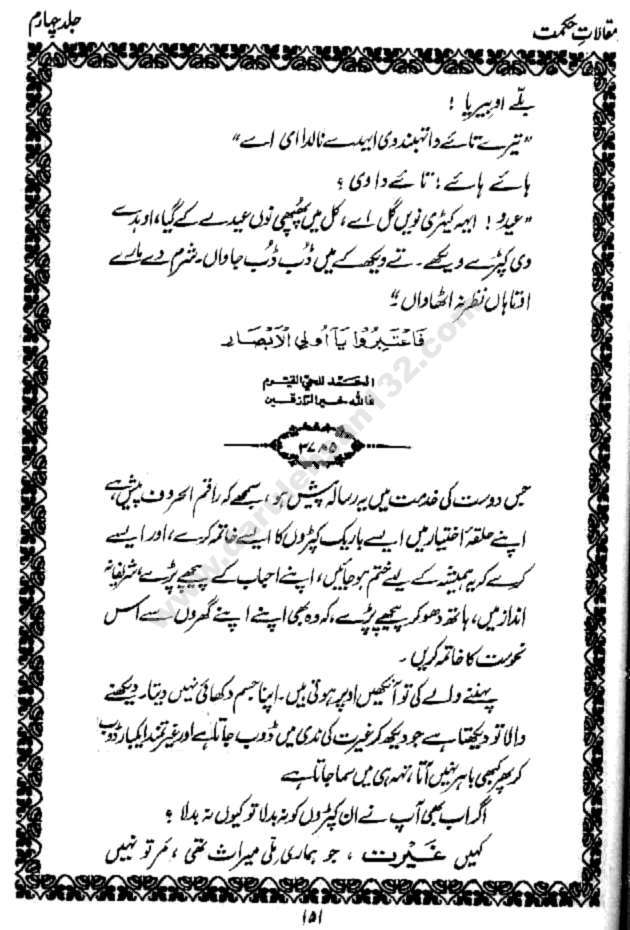 مقالاتِ حکمت
جلد چہارم
بلّے او بیریا !
”تیرے تائے دا تہبند وی ایہسے نالدا ای اے“
ہائے ہائے ؛ تائے دا وی ؟
”عیدو ! ایہہ کیہڑی نویں گل اے، کل میں پھُپھی نوں عیدے کے گیا، اوہدے
وی کپڑے ویکھے۔ تے ویکھ کے میں ڈُب ڈُب جاواں۔ شرم دے مارے
افتاہاں نظر نہ اٹھاواں۔“
فَاعْتَبِرُوْا يَآ اُولِي الْاَبْصَارِ
الحمد للحي القيوم
فالله خير الرازقين
۳۷۸۵
جس دوست کی خدمت میں یہ رسالہ پیش ہو، سمجھے کہ راقم الحروف پیش ہے
اپنے حلقۂ اختیار میں ایسے باریک کپڑوں کا ایسے خاتمہ کرے، اور ایسے
کرے کہ یہ ہمیشہ کے لیے ختم ہو جائیں، اپنے احباب کے پیچھے پڑے، شریفانہ
انداز میں، ہاتھ دھو کر پیچھے پڑے، کہ وہ بھی اپنے اپنے گھروں سے اس
نحوست کا خاتمہ کریں۔
پہننے والے کی تو آنکھیں اوپر ہوتی ہیں۔ اپنا جسم دکھائی نہیں دیتا، دیکھنے
والا تو دیکھتا ہے جو دیکھ کر غیرت کی ندی میں ڈوب جاتا ہے اور غیرتمند ایکبار ڈوب
کر پھر کبھی باہر نہیں آتا، تہہ ہی میں سما جاتا ہے
اگر اب بھی آپ نے ان کپڑوں کو نہ بدلا تو کیوں نہ بدلا ؟
کہیں غیرت ، جو ہماری ملی میراث تھی ، مر تو نہیں
۱۵۱
www.darulehsan132.com